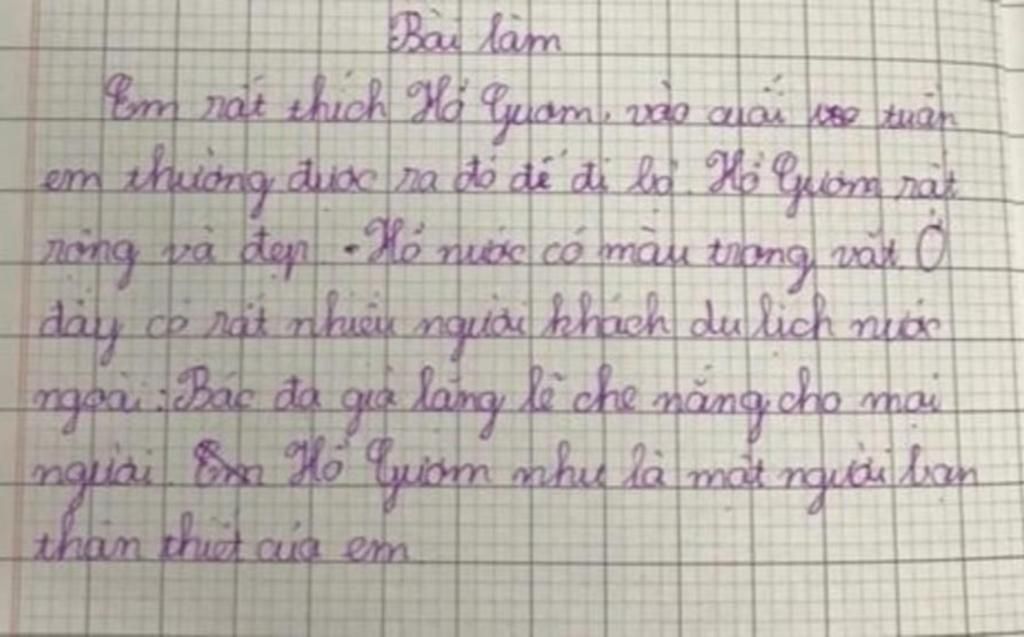 Bài làm
Em rất thích Hồ Gươm, vào cuối tuần
em thường được ra đó để đi bộ. Hồ Gươm rất
rộng và đẹp. Hồ nước có màu trong vắt. Ở
đây có rất nhiều người khách du lịch nước
ngoài. Bác đa già lặng lẽ che nắng cho mọi
người. Hồ Gươm như là một người bạn
thân thiết của em